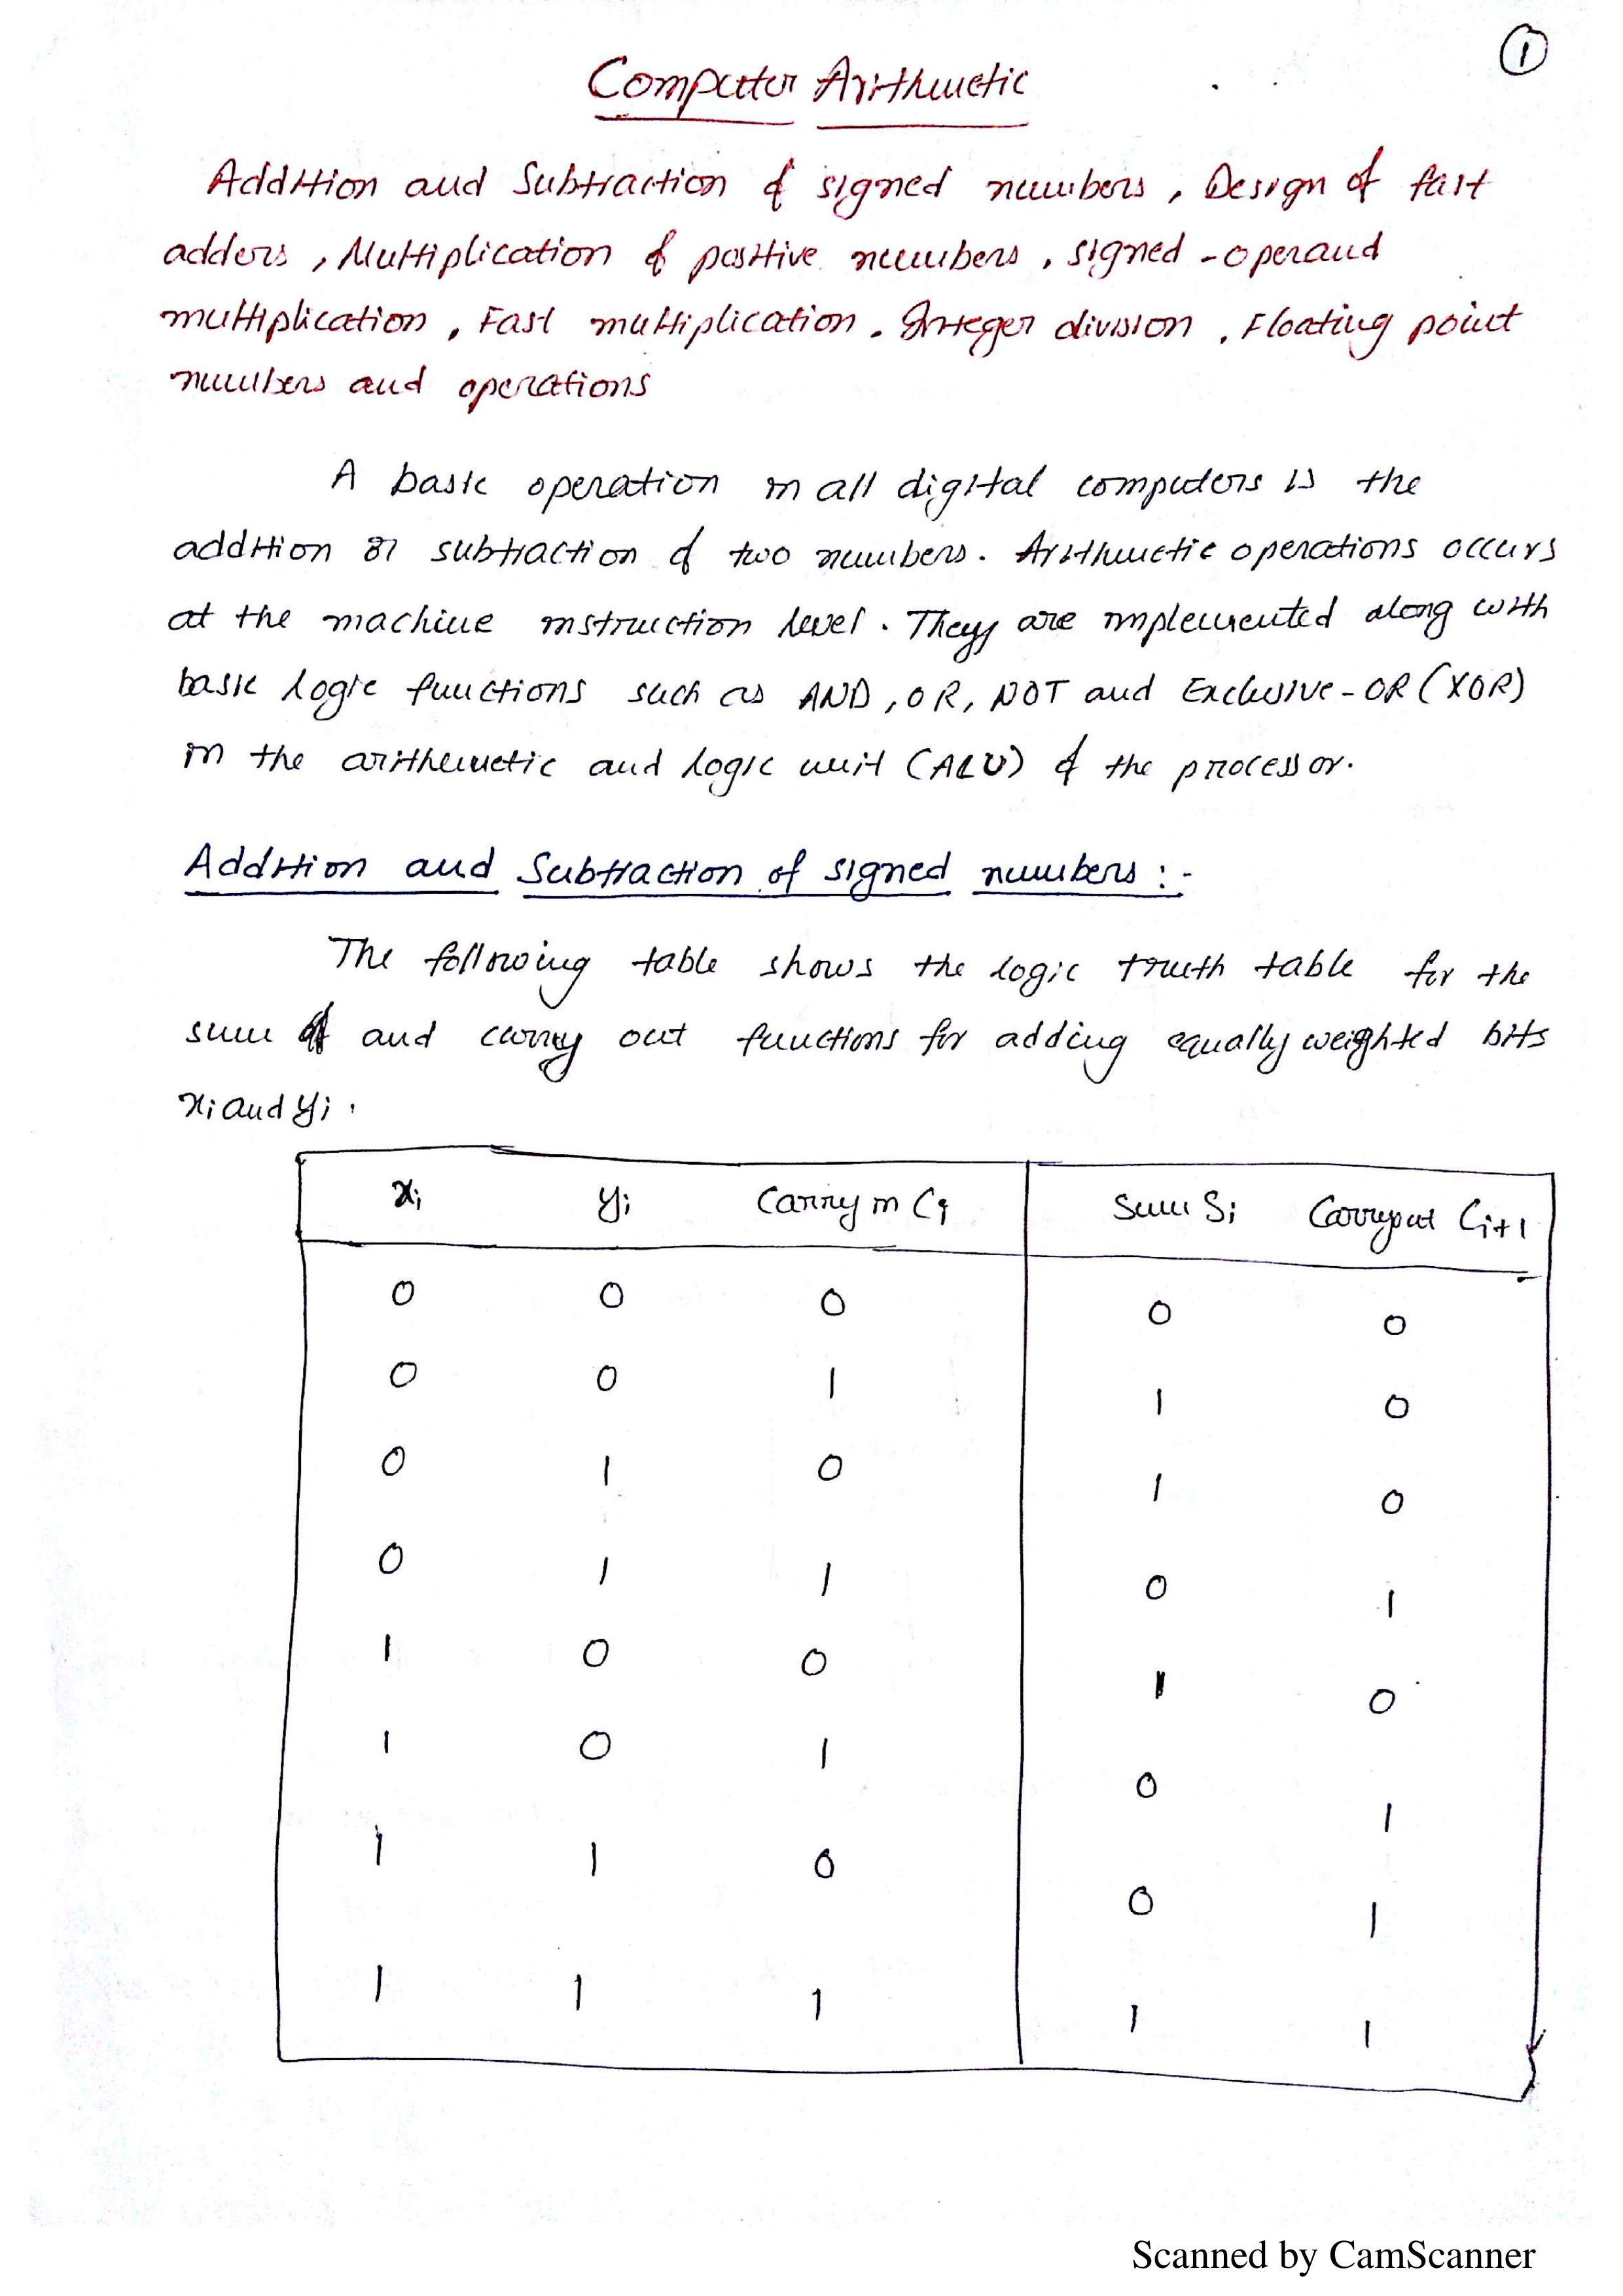 1
Computer Arithmetic
Addition and Subtraction of signed numbers, Design of fast
adders, Multiplication of positive numbers, signed-operand
multiplication, Fast multiplication. Integer division, Floating point
numbers and operations
A basic operation in all digital computers is the
addition or subtraction of two numbers. Arithmetic operations occurs
at the machine instruction level. They are implemented along with
basic logic functions such as AND, OR, NOT and Exclusive-OR (XOR)
in the arithmetic and logic unit (ALU) of the processor.
Addition and Subtraction of signed numbers :-
The following table shows the logic truth table for the
sum and carry out functions for adding equally weighted bits
xi and yi.
xi yi Carry in Ci Sum Si Carryout Ci+1
0 0 0 0 0
0 0 1 1 0
0 1 0 1 0
0 1 1 0 1
1 0 0 1 0
1 0 1 0 1
1 1 0 0 1
1 1 1 1 1
Scanned by CamScanner